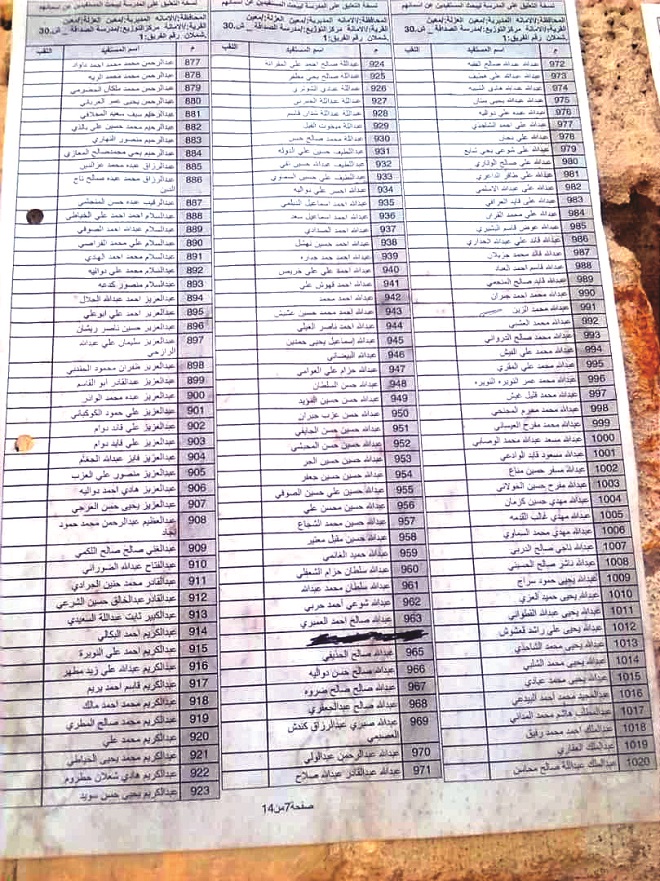 نسخة التعليق على المدرسة ليبحث المستفيدين عن اسمائهم
المحافظة/الامانة المديرية/معين العزلة/معين
القرية/الامانة مركز التوزيع/مدرسة الصداقة _ ش30.
شملان رقم الفريق:1
م اسم المستفيد اللقب
877 عبدالرحمن محمد محمد احمد داود
878 عبدالرحمن محمد محمد
879 عبدالرحمن محمد ملكان
880 عبدالرحمن يحيى عمر
881 عبدالرحيم سيف سعيد المخلافي
882 عبدالرحيم محمد حسين علي
883 عبدالرحيم منصور النهاري
884 عبدالرحيم يحي محمدصالح المعازي
885 عبدالرزاق عبده محمد عزالدين
886 عبدالرزاق محمد عبده صالح تاج
الدين
887 عبدالرقيب عبده حسن
888 عبدالسلام احمد احمد علي الخياطي
889 عبدالسلام عبدالله احمد الصوفي
890 عبدالسلام علي محمد
891 عبدالسلام محمد احمد الهادي
892 عبدالسلام محمد علي دواليه
893 عبدالسلام منصور
894 عبدالعزيز احمد عبدالله الجلال
895 عبدالعزيز احمد علي ابوعلي
896 عبدالعزيز حسين ناصر ريشان
897 عبدالعزيز سليمان علي عبدالله
الرازحي
898 عبدالعزيز محمود
899 عبدالعزيز عبدالقادر ابو القاسم
900 عبدالعزيز عبده محمد
901 عبدالعزيز علي حمود الكوكباني
902 عبدالعزيز علي قائد دوام
903 عبدالعزيز علي قايد دوام
904 عبدالعزيز فايز عبدالله
905 عبدالعزيز منصور علي العزب
906 عبدالعزيز هادي احمد دواليه
907 عبدالعزيز يحيى حسن
908 عبدالعظيم عبدالرحمن محمد حمود
909 عبدالغني صالح صالح
910 عبدالفتاح عبدالله الضوراني
911 عبدالقادر محمد حنين الجرادي
912 عبدالقادر عبدالخالق حسين الشرعي
913 عبدالكبير ثابت عبداللة السعيدي
914 عبدالكريم احمد البكالي
915 عبدالكريم احمد علي النويرة
916 عبدالكريم عبدالله علي زيد مطهر
917 عبدالكريم قاسم احمد بريم
918 عبدالكريم محمد احمد مالك
919 عبدالكريم محمد صالح المطري
920 عبدالكريم محمد علي
921 عبدالكريم محمد يحيى الخياطي
922 عبدالكريم هادي شعلان
923 عبدالكريم يحيى حسن سويد
نسخة التعليق على المدرسة ليبحث المستفيدين عن اسمائهم
المحافظة/الامانة المديرية/معين العزلة/معين
القرية/الامانة مركز التوزيع/مدرسة الصداقة _ ش30.
شملان رقم الفريق:1
م اسم المستفيد اللقب
924 عبدالله صالح احمد علي
925 عبدالله صالح يحي مظفر
926 عبدالله عبادي
927 عبدالله عبدالله
928 عبدالله عبدالله قاسم
929 عبدالله مبخوت القبل
930 عبدالله محمد صالح
931 عبداللطيف حسين علي
932 عبداللطيف عبدالله حسين
933 عبداللطيف علي حسين السماوي
934 عبدالله احمد علي دواليه
935 عبدالله احمد اسماعيل السلمي
936 عبدالله احمد اسماعيل سعد
937 عبدالله احمد
938 عبدالله احمد حسين نهشل
939 عبدالله احمد حمد
940 عبدالله احمد علي علي
941 عبدالله احمد علي
942 عبدالله احمد محمد
943 عبدالله احمد محمد حسين عشيش
944 عبدالله احمد ناصر
945 عبدالله إسماعيل يحيى حمدين
946 عبدالله البيضاني
947 عبدالله حزام علي العوامي
948 عبدالله حسن السلطان
949 عبدالله حسن حسين
950 عبدالله حسن عزب جبران
951 عبدالله حسين حسن الجايفي
952 عبدالله حسين حسن المحبشي
953 عبدالله حسين حسين
954 عبدالله حسين حسين جعفر
955 عبدالله حسين علي حسين الصوفي
956 عبدالله حسين محسن علي
957 عبدالله حسين محمد الشجاع
958 عبدالله حسين مقبل
959 عبدالله حميد
960 عبدالله سلطان حزام
961 عبدالله سلطان محمد عبدالله
962 عبدالله شوعي احمد حربي
963 عبدالله صالح احمد العمري
965 عبدالله صالح الحنيفي
966 عبدالله صالح حسن دواليه
967 عبدالله صالح صالح ضروه
968 عبدالله صالح عبدالجعفري
969 عبدالله صبري عبدالرزاق كندش
العصيمي
970 عبدالله عبدالرحمن عبدالولي
971 عبدالله عبدالقادر عبدالله صلاح
نسخة التعليق على المدرسة ليبحث المستفيدين عن اسمائهم
المحافظة/الامانة المديرية/معين العزلة/معين
القرية/الامانة مركز التوزيع/مدرسة الصداقة _ ش30.
شملان رقم الفريق:1
م اسم المستفيد اللقب
972 عبدالله عبدالله صالح الفقيه
973 عبدالله عبدالله علي
974 عبدالله عبدالله هادي
975 عبدالله عبدالله يحيى
976 عبدالله عبده علي دواليه
977 عبدالله علي احمد
978 عبدالله علي
979 عبدالله علي شوعي يحي شايع
980 عبدالله علي صالح
981 عبدالله علي ظافر
982 عبدالله علي عبدالله الاسلمي
983 عبدالله علي قايد العراقي
984 عبدالله علي محمد
985 عبدالله عوض قاسم البشيري
986 عبدالله قايد علي عبدالله
987 عبدالله قائد محمد
988 عبدالله قاسم احمد العماد
989 عبدالله قايد صالح
990 عبدالله محمد احمد جبران
991 عبدالله محمد الزين
992 عبدالله محمد
993 عبدالله محمد صالح
994 عبدالله محمد علي
995 عبدالله محمد علي المقري
996 عبدالله محمد عمر النويره النويره
997 عبدالله محمد قايد
998 عبدالله محمد
999 عبدالله محمد مفرح
1000 عبدالله مسعد عبدالله محمد الوصابي
1001 عبدالله مسعود قايد الوادعي
1002 عبدالله مسفر حسين مناع
1003 عبدالله مفرح حسين الخولاني
1004 عبدالله مهدي حسين كزمان
1005 عبدالله مهدي غالب القدمه
1006 عبدالله مهدي محمد السماوي
1007 عبدالله ناجي صالح
1008 عبدالله ناشر صالح الحسيني
1009 عبدالله يحيى حمود سراج
1010 عبدالله يحيى حميد العزي
1011 عبدالله يحيى عبدالله القطواني
1012 عبدالله يحيى علي راشد
1013 عبدالله يحيى محمد الشاحذي
1014 عبدالله يحيى محمد الشلبي
1015 عبدالله يحيى محمد عبادي
1016 عبدالمجيد محمد احمد
1017 عبدالمطلب هاشم محمد المداني
1018 عبدالملك احمد محمد رفيق
1019 عبدالملك الغفاري
1020 عبدالملك عبداللة صالح محاسن
صفحة7من14